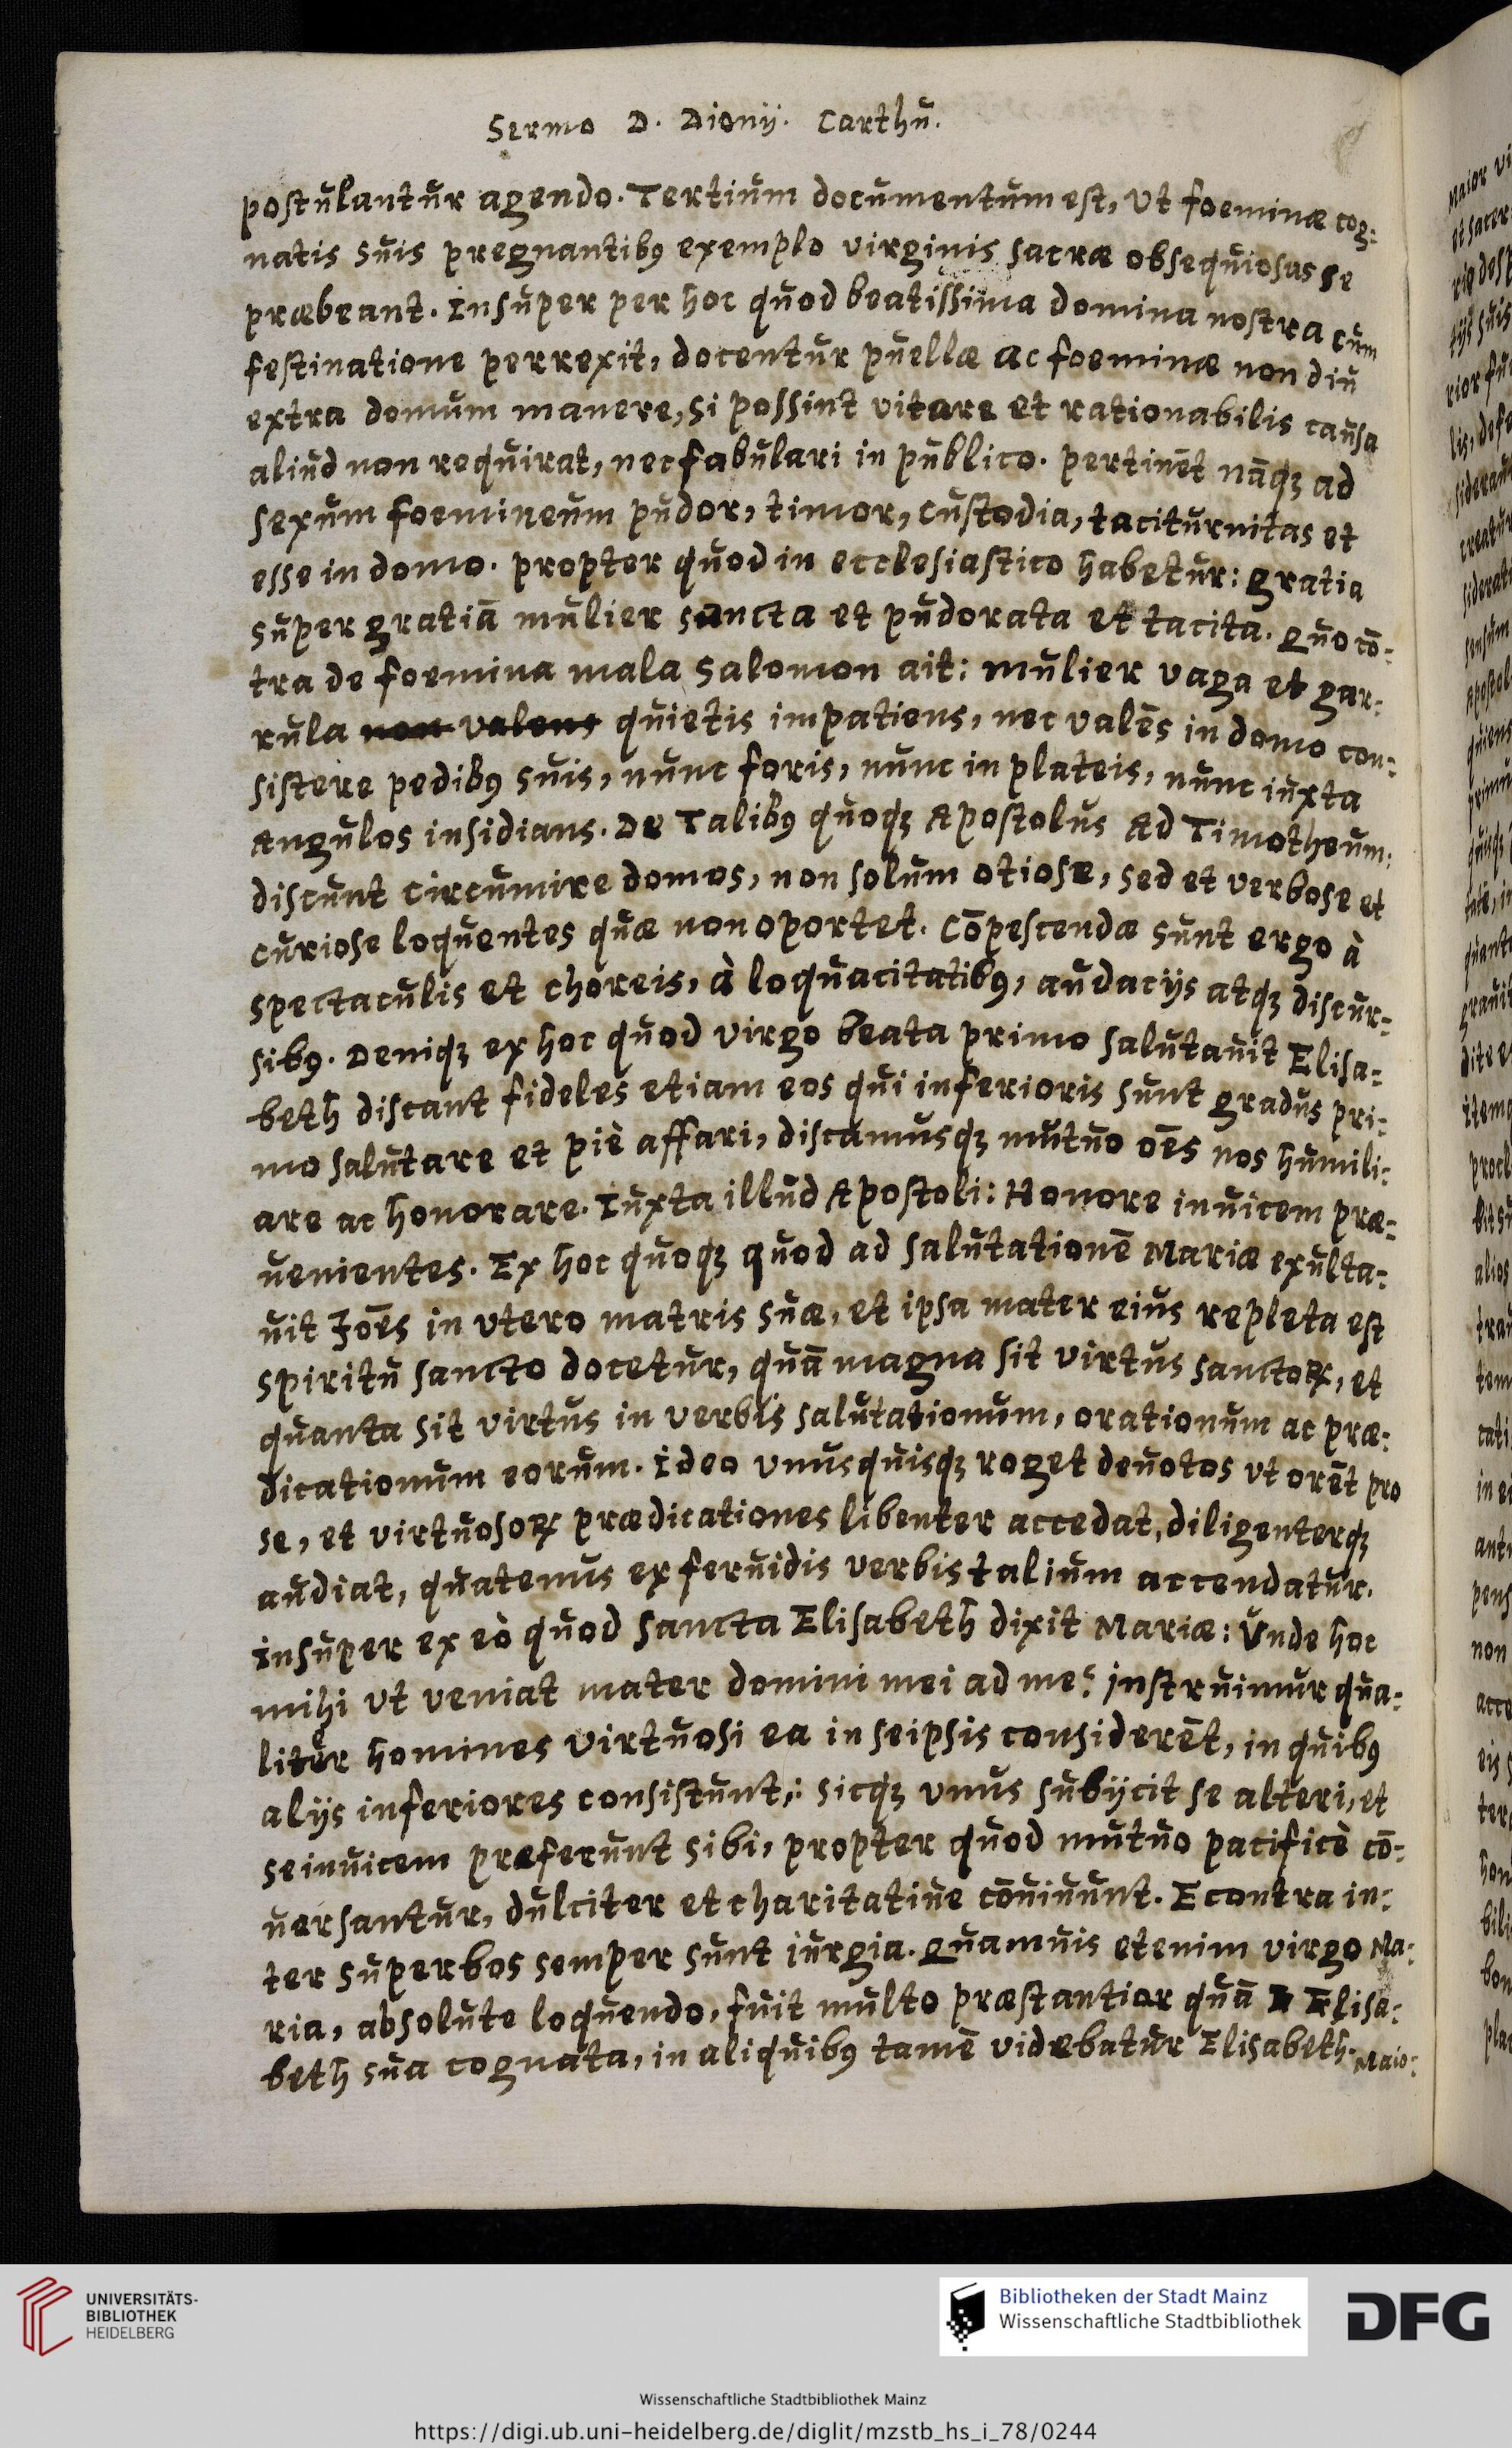 Sermo D. Dionij. Carthu.
postulantur agendo. Tertium documentum est, ut foeminæ cog:
natis suis pregnantibꝰ exemplo virginis sacræ obsequiosas se
præbeant. Insuper per hoc quod beatissima domina nostra cum
festinatione perrexit, docentur puellæ ac foeminæ non diu
extra domum manere, si possint vitare et rationabilis causa
aliud non requirat, nec fabulari in publico. pertinēt nāqꝫ ad
sexum foemineum pudor, timor, custodia, taciturnitas et
esse in domo. propter quod in ecclesiastico habetur: gratia
super gratiā mulier sancta et pudorata et tacita. Quo cō:
tra de foemina mala Salomon ait: mulier vaga et gar:
rula non valens quietis impatiens, nec valēs in domo con:
sistere pedibꝰ suis, nunc foris, nunc in plateis, nunc iuxta
Angulos insidians. De Talibꝰ quoqꝫ Apostolus Ad Timotheum:
discunt circumire domos, non solum otiosæ, sed et verbose et
curiose loquentes quæ non oportet. Cōpescendæ sunt ergo à
spectaculis et choreis, à loquacitatibꝰ, audacijs atqꝫ discur:
sibꝰ. Deniqꝫ ex hoc quod virgo beata primo salutauit Elisa:
beth discant fideles etiam eos qui inferioris sunt gradus pri:
mo salutare et piè affari, discamusqꝫ mutuo oēs nos humili:
are ac honorare. Iuxta illud Apostoli: Honore inuicem præ:
uenientes. Ex hoc quoqꝫ quod ad salutationē Mariæ exulta:
uit Joēs in vtero matris suæ, et ipsa mater eius repleta est
spiritu sancto docetur, quā magna sit virtus sanctoꝝ, et
quanta sit virtus in verbis salutationum, orationum ac præ:
dicationum eorum. ideo vnusquisqꝫ roget deuotos vt orēt pro
se, et virtuosoꝝ prædicationes libenter accedat, diligenterqꝫ
audiat, quatenus ex feruidis verbis talium accendatur.
insuper ex eò quod Sancta Elisabeth dixit Mariæ: Unde hoc
mihi vt veniat mater domini mei ad me? instruimur qua:
liter homines virtuosi ea in seipsis considerēt, in quibꝰ
alijs inferiores consistunt,: sicqꝫ vnus subijcit se alteri, et
seinuicem præferunt sibi, propter quod mutuo pacificè cō:
uersantur, dulciter et charitatiue cōuiuunt. E contra in:
ter superbos semper sunt iurgia. Quamuis etenim virgo Ma:
ria, absolute loquendo, fuit multo præstantior quā Elisa:
beth sua cognata, in aliquibꝰ tamē videbatur Elisabeth. Maio:
UNIVERSITÄTS-
BIBLIOTHEK
HEIDELBERG
Bibliotheken der Stadt Mainz
Wissenschaftliche Stadtbibliothek
DFG
Wissenschaftliche Stadtbibliothek Mainz
https://digi.ub.uni-heidelberg.de/diglit/mzstb_hs_i_78/0244